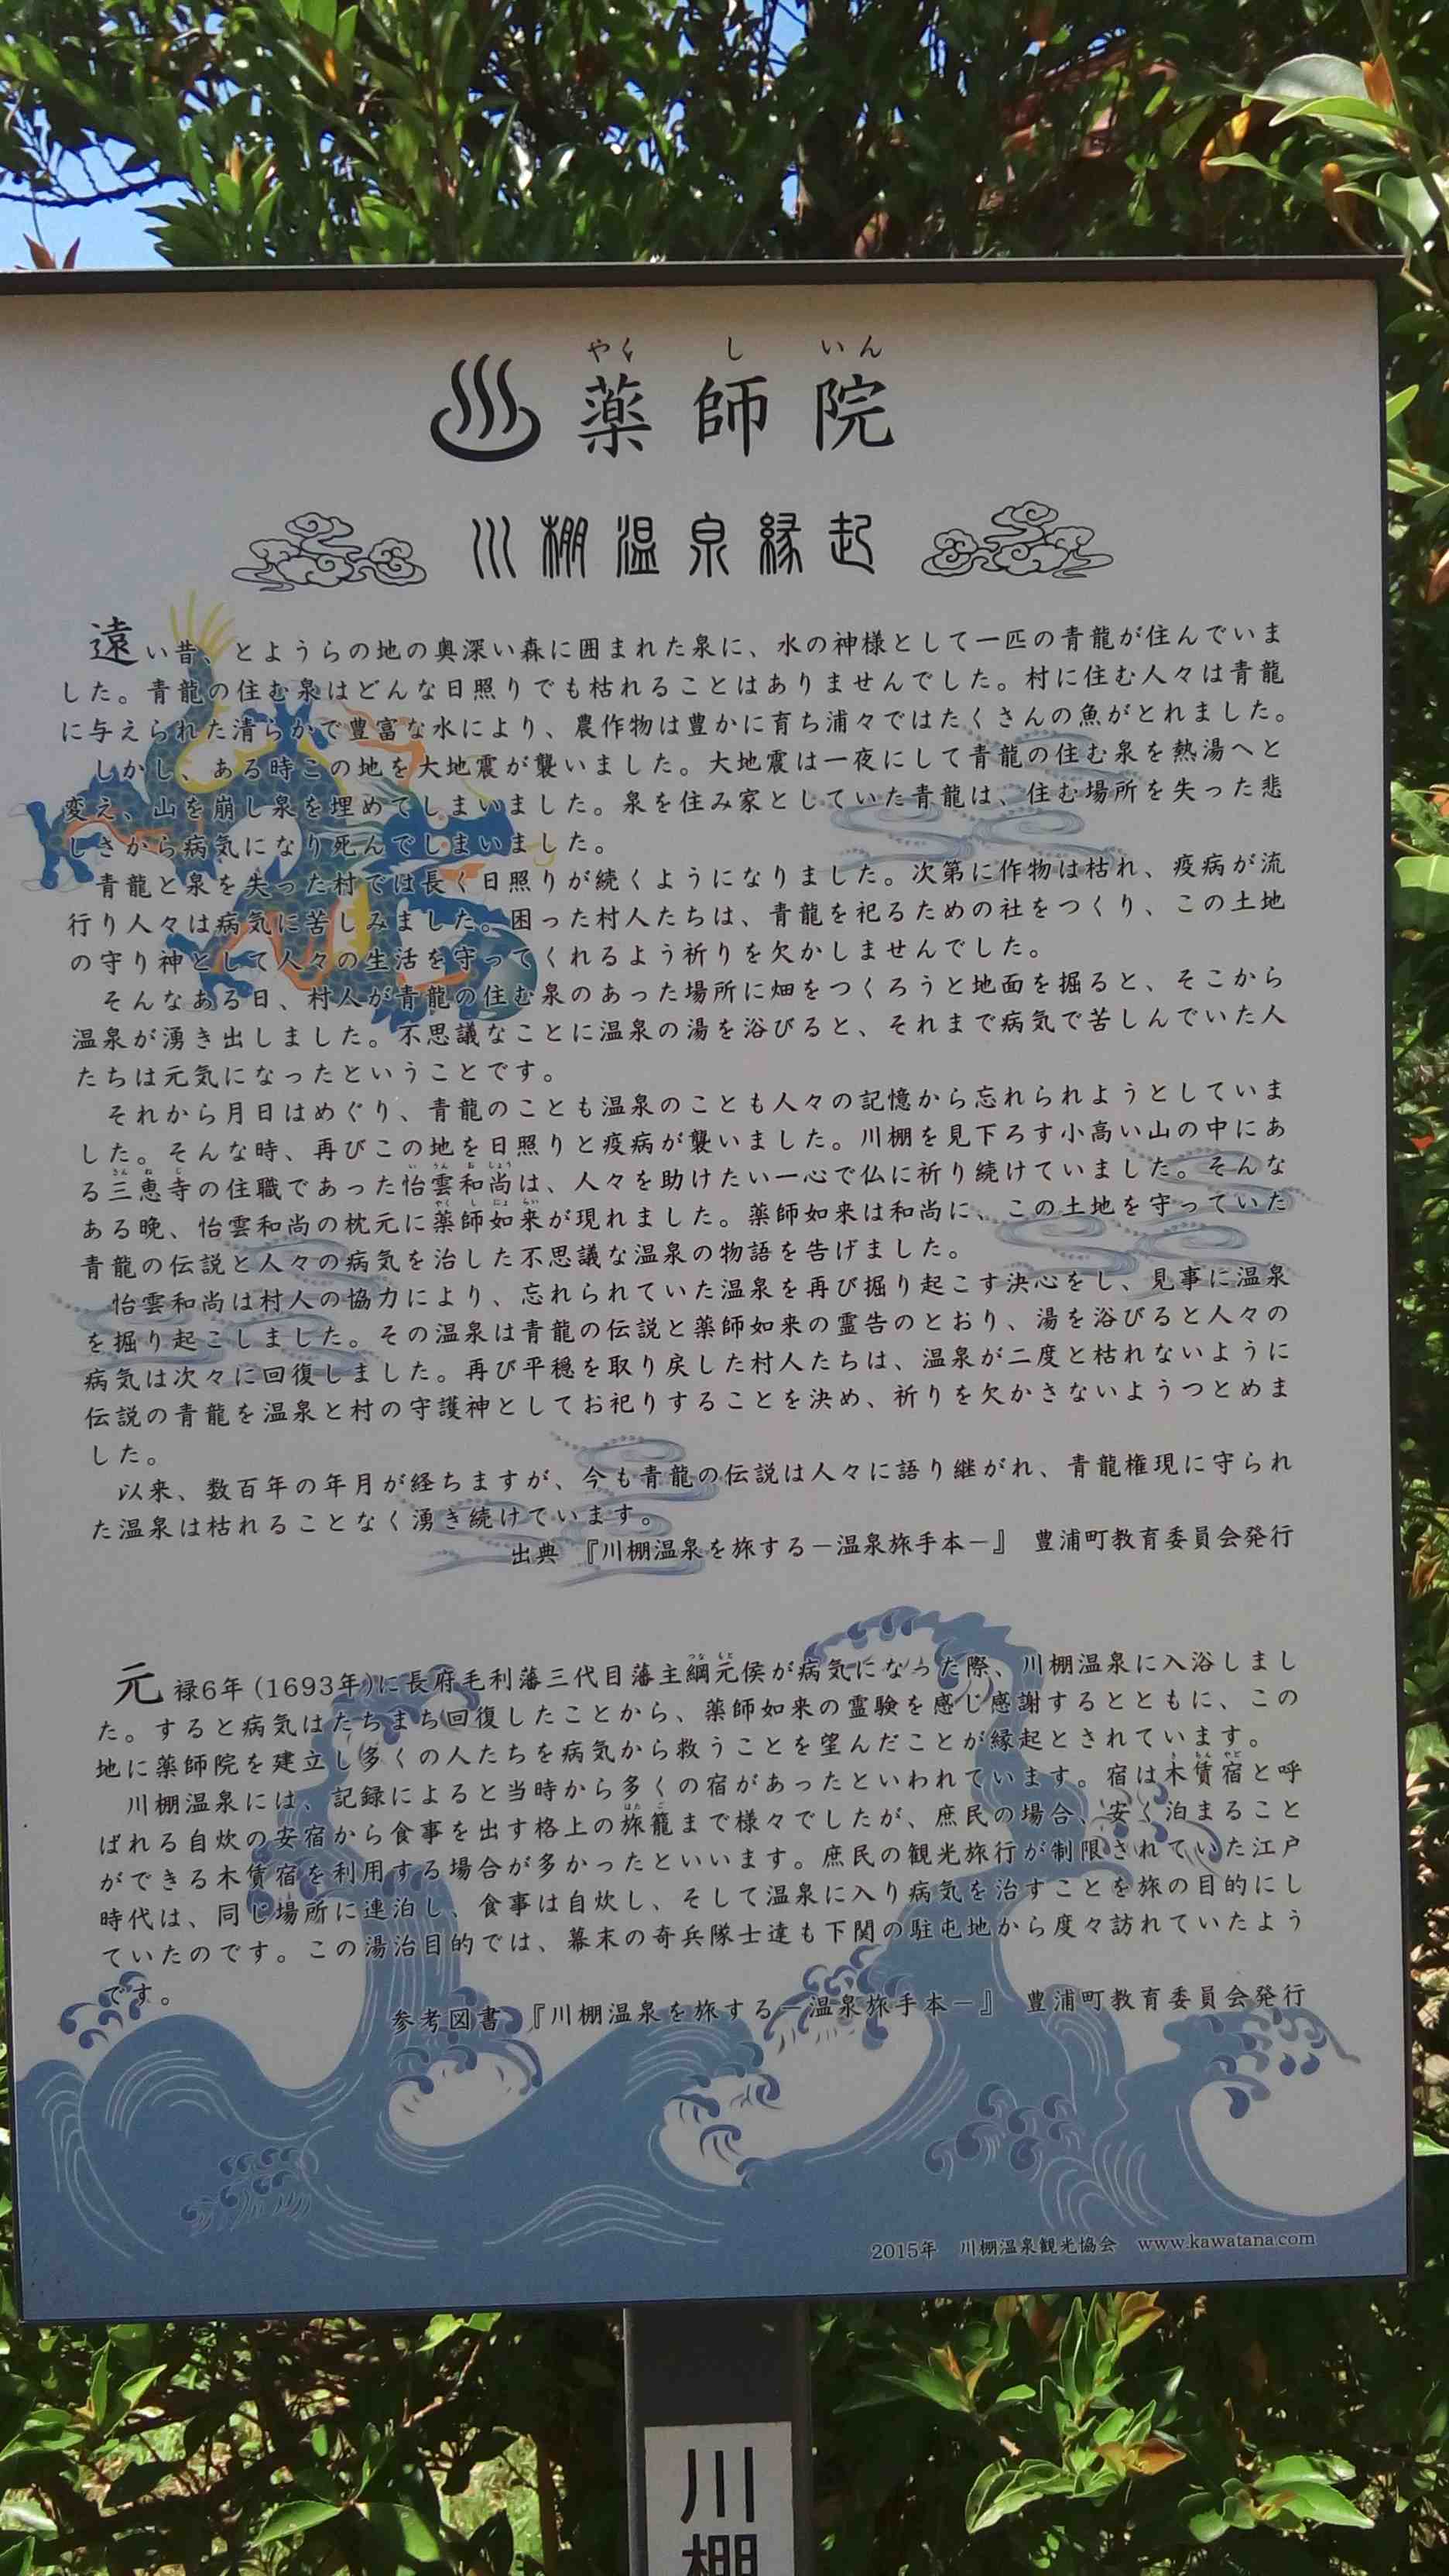 やく し いん
♨薬師院
川棚温泉縁起
遠い昔、とようらの地の奥深い森に囲まれた泉に、水の神様として一匹の青龍が住んでいま
した。青龍の住む泉はどんな日照りでも枯れることはありませんでした。村に住む人々は青龍
に与えられた清らかで豊富な水により、農作物は豊かに育ち浦々ではたくさんの魚がとれました。
しかし、ある時この地を大地震が襲いました。大地震は一夜にして青龍の住む泉を熱湯へと
変え、山を崩し泉を埋めてしまいました。泉を住み家としていた青龍は、住む場所を失った悲
しさから病気になり死んでしまいました。
青龍と泉を失った村では長く日照りが続くようになりました。次第に作物は枯れ、疫病が流
行り人々は病気に苦しみました。困った村人たちは、青龍を祀るための社をつくり、この土地
の守り神として人々の生活を守ってくれるよう祈りを欠かしませんでした。
そんなある日、村人が青龍の住む泉のあった場所に畑をつくろうと地面を掘ると、そこから
温泉が湧き出しました。不思議なことに温泉の湯を浴びると、それまで病気で苦しんでいた人
たちは元気になったということです。
それから月日はめぐり、青龍のことも温泉のことも人々の記憶から忘れられようとしていま
した。そんな時、再びこの地を日照りと疫病が襲いました。川棚を見下ろす小高い山の中にあ
さん ね じ い うん お しょう
る三恵寺の住職であった怡雲和尚は、人々を助けたい一心で仏に祈り続けていました。そんな
やく し にょ らい
ある晩、怡雲和尚の枕元に薬師如来が現れました。薬師如来は和尚に、この土地を守っていた
青龍の伝説と人々の病気を治した不思議な温泉の物語を告げました。
怡雲和尚は村人の協力により、忘れられていた温泉を再び掘り起こす決心をし、見事に温泉
を掘り起こしました。その温泉は青龍の伝説と薬師如来の霊告のとおり、湯を浴びると人々の
病気は次々に回復しました。再び平穏を取り戻した村人たちは、温泉が二度と枯れないように
伝説の青龍を温泉と村の守護神としてお祀りすることを決め、祈りを欠かさないようつとめま
した。
以来、数百年の年月が経ちますが、今も青龍の伝説は人々に語り継がれ、青龍権現に守られ
た温泉は枯れることなく湧き続けています。
出典 『川棚温泉を旅する－温泉旅手本－』 豊浦町教育委員会発行
つな もと
元禄6年(1693年)に長府毛利藩三代目藩主綱元侯が病気になった際、川棚温泉に入浴しまし
た。すると病気はたちまち回復したことから、薬師如来の霊験を感じ感謝するとともに、この
地に薬師院を建立し多くの人たちを病気から救うことを望んだことが縁起とされています。
き ちん やど
川棚温泉には、記録によると当時から多くの宿があったといわれています。宿は木賃宿と呼
はた ご
ばれる自炊の安宿から食事を出す格上の旅籠まで様々でしたが、庶民の場合、安く泊まること
ができる木賃宿を利用する場合が多かったといいます。庶民の観光旅行が制限されていた江戸
時代は、同じ場所に連泊し、食事は自炊し、そして温泉に入り病気を治すことを旅の目的にし
ていたのです。この湯治目的では、幕末の奇兵隊士達も下関の駐屯地から度々訪れていたよう
です。
参考図書 『川棚温泉を旅する－温泉旅手本－』 豊浦町教育委員会発行
2015年 川棚温泉観光協会 www.kawatana.com
川棚